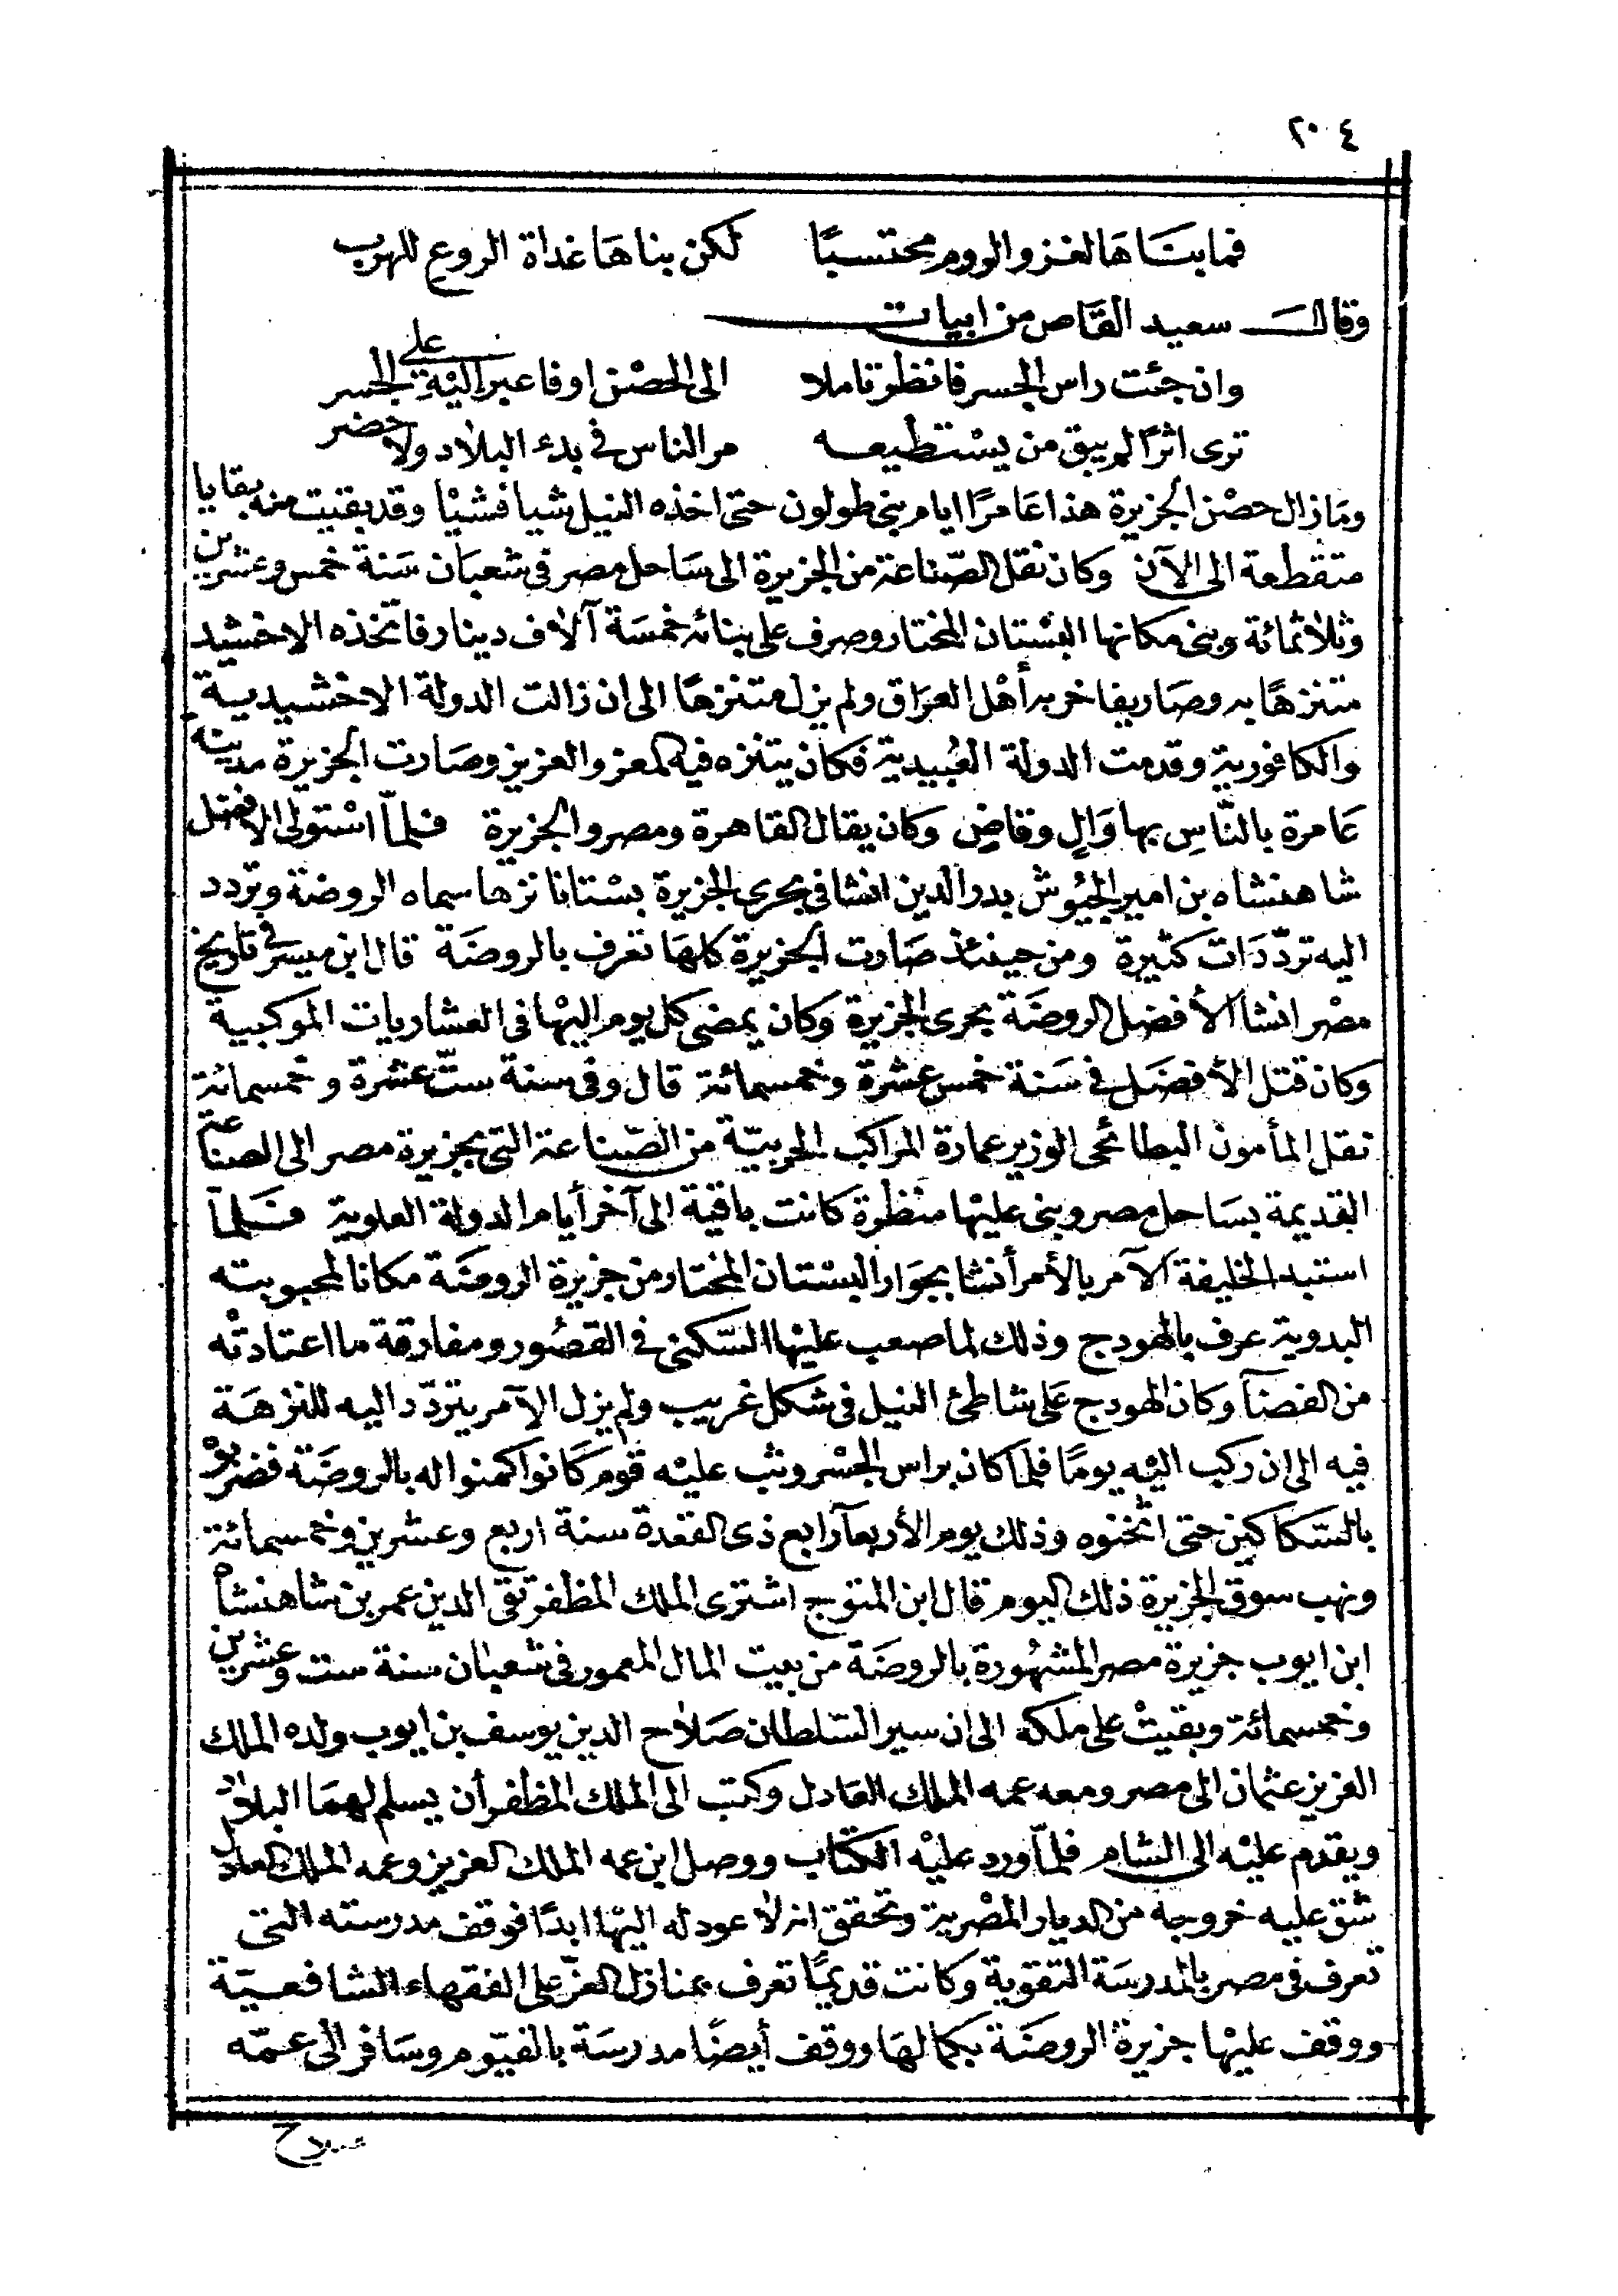 ٢٠٤
فما بناها لغزو الروم محتسبًا لكن بناها غداة الروع للهرب
وقال سعيد القاص من ابيات
وان جئت راس الجسر فانظر تاملا الى الحصن اوفا عبر اليه على الجسر
ترى اثرًا لم يبق من يستطيعه من الناس في بدء البلاد ولا حضر
وما زال حصن الجزيرة هذا عامرًا ايام بني طولون حتى اخذه النيل شيا فشيا وقد بقيت منه بقايا
متقطعة الى الآن وكان نقل الصناعة من الجزيرة الى ساحل مصر في شعبان سنة خمس وعشرين
وثلاثمائة وبنى مكانها البستان المختار وصرف على بنائه خمسة آلاف دينار فاتخذه الاخشيد
متنزهًا به وصار يفاخر به أهل العراق ولم يزل متنزها الى ان زالت الدولة الاخشيدية
والكافورية وقدمت الدولة العُبيدية فكان يتنزه فيه المعز والعزيز وصارت الجزيرة مدينة
عامرة بالناس بها وَالٍ وقاضٍ وكان يقال القاهرة ومصر والجزيرة فلمّا استولى الافضل
شاهنشاه بن امير الجيُوش بدر الدين انشا في بحري الجزيرة بستانا نزها سماه الروضة وتردد
اليه تردّدَات كثيرة ومن حينئذ صارت الجزيرة كلها تعرف بالروضة قال ابن ميسر في تاريخ
مصر انشا الأفضل الروضة بحرى الجزيرة وكان يمضى كل يوم اليها في العشاريات الموكبية
وكان قتل الأفضل في سنة خمس عشرة وخمسمائة قال وفى سنة ستّ عشرة وخمسمائة
نقل المأمون البطائحى الوزير عمارة المراكب الحربيّة من الصّناعة التى بجزيرة مصر الى الصناعة
القديمة بساحل مصر وبنى عليها منظرة كانت باقية الى آخر أيام الدولة العلوية فلمّا
استبد الخليفة الآمر بالأمر أنشا بجوار البستان المختار من جزيرة الروضة مكانا لمحبوبته
البدوية عرف بالهودج وذلك لما صعب عليها السّكنى في القصُور ومفارقة ما اعتادتْه
من الفضآ وكان الهودج على شاطئ النيل في شكل غريب ولم يزل الآمر يتردّد اليه للنزهة
فيه الى ان ركب اليه يومًا فلما كان براس الجسر وثب عليه قوم كانوا كمنوا له بالروضة فضربوْ
بالسّكاكين حتى اثخنوه وذلك يوم الأربعآ رابع ذى القعدة سنة اربع وعشرين وخمسمائة
ونهب سوق الجزيرة ذلك اليوم قال ابن المتوج اشترى الملك المظفر تقى الدين عمر بن شاهنشاه
ابن ايوب جزيرة مصر المشهُورة بالروضة من بيت المال المعمور فى شعبان سنة ست وعشرين
وخمسمائة وبقيتْ على ملكه الى ان سير السّلطان صَلاح الدين يوسف بن ايوب ولده الملك
العزيز عثمان الى مصر ومعه عمه الملك العادل وكتب الى الملك المظفر أن يسلم لهما البلاد
ويقدم عليه الى الشام فلمّا ورد عليْه الكتاب ووصل ابن عمه الملك العزيز وعمه الملك العادل
شق عليه خروجه من الديار المصْرية وتحقق انه لا عود له اليها ابدًا فوقف مدرسته التى
تعرف فى مصر بالمدرسة التقوية وكانت قديمًا تعرف بمنازل العزّ على الفقهاء الشافعيّة
ووقف عليها جزيرة الروضة بكمالها ووقف أيضًا مدرسة بالفيّوم وسافر الى عمّه